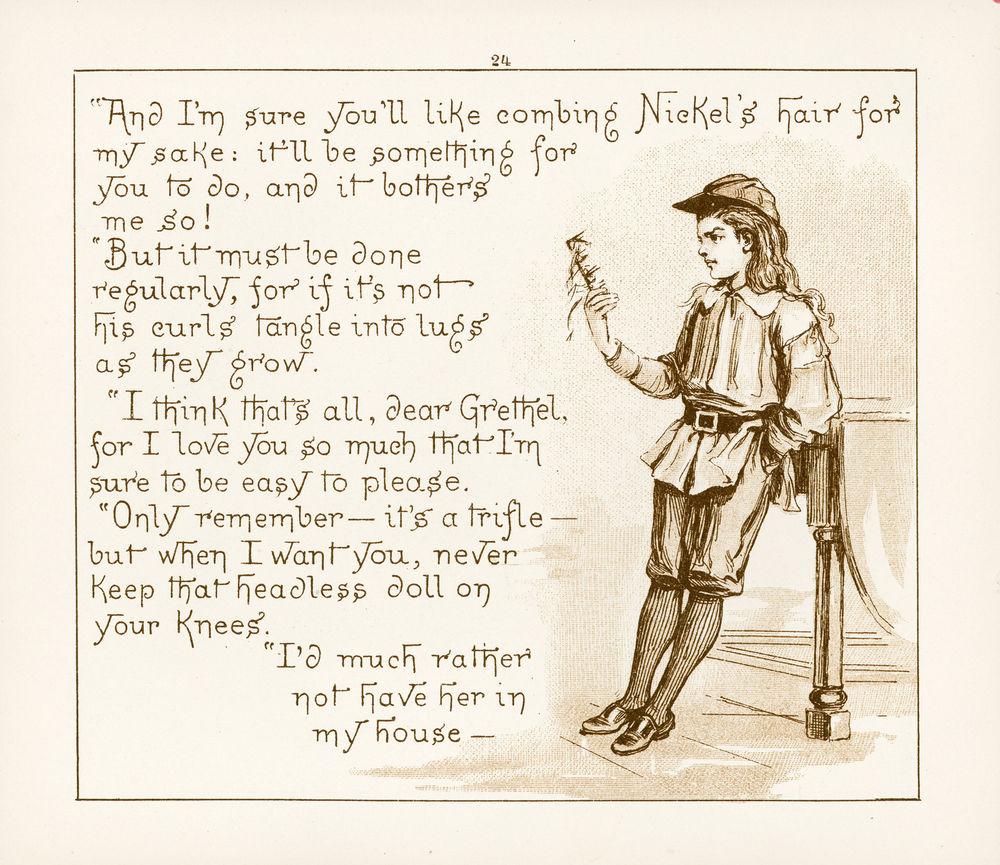 24
"And I'm sure you'll like combing Nickel's hair for
my sake: it'll be something for
you to do, and it bothers
me so!
"But it must be done
regularly, for if it's not
his curls tangle into lugs
as they grow.
"I think that's all, dear Grethel,
for I love you so much that I'm
sure to be easy to please.
"Only remember — it's a trifle —
but when I want you, never
keep that headless doll on
your knees.
"I'd much rather
not have her in
my house —